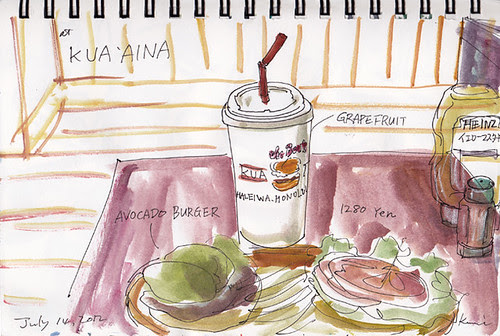 at
KUA'AINA
GRAPEFRUIT
KUA
HALEIWA. HONOLU
HEINZ
AVOCADO BURGER
1280 Yen
July 14, 2012